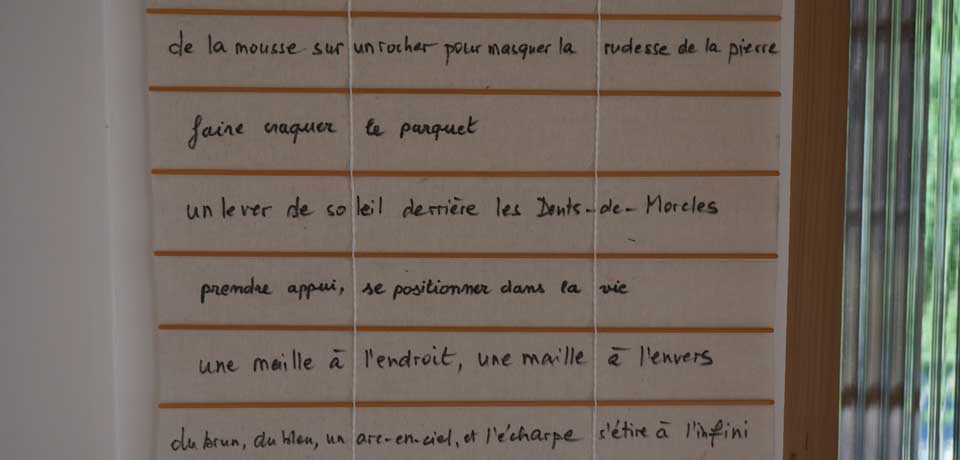 de la mousse sur un rocher pour masquer la rudesse de la pierre
faire craquer le parquet
un lever de soleil derrière les Dents-de-Morcles
prendre appui, se positionner dans la vie
une maille à l'endroit, une maille à l'envers
du brun, du bleu, un arc-en-ciel, et l'écharpe s'étire à l'infini